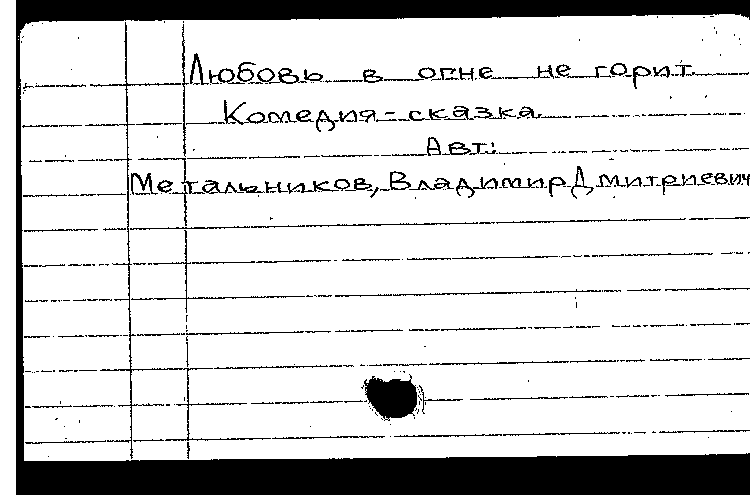 Любовь в огне не горит.
Комедия-сказка.
Авт:
Метальников, Владимир Дмитриевич